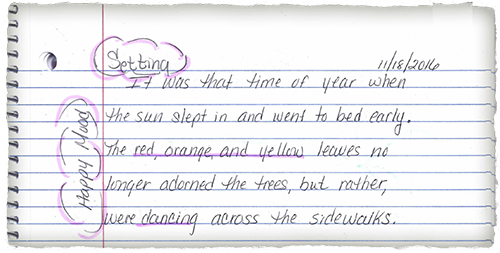 Setting
11/18/2016
It was that time of year when
the sun slept in and went to bed early.
The red, orange, and yellow leaves no
longer adorned the trees, but rather,
were dancing across the sidewalks.
Happy Mood